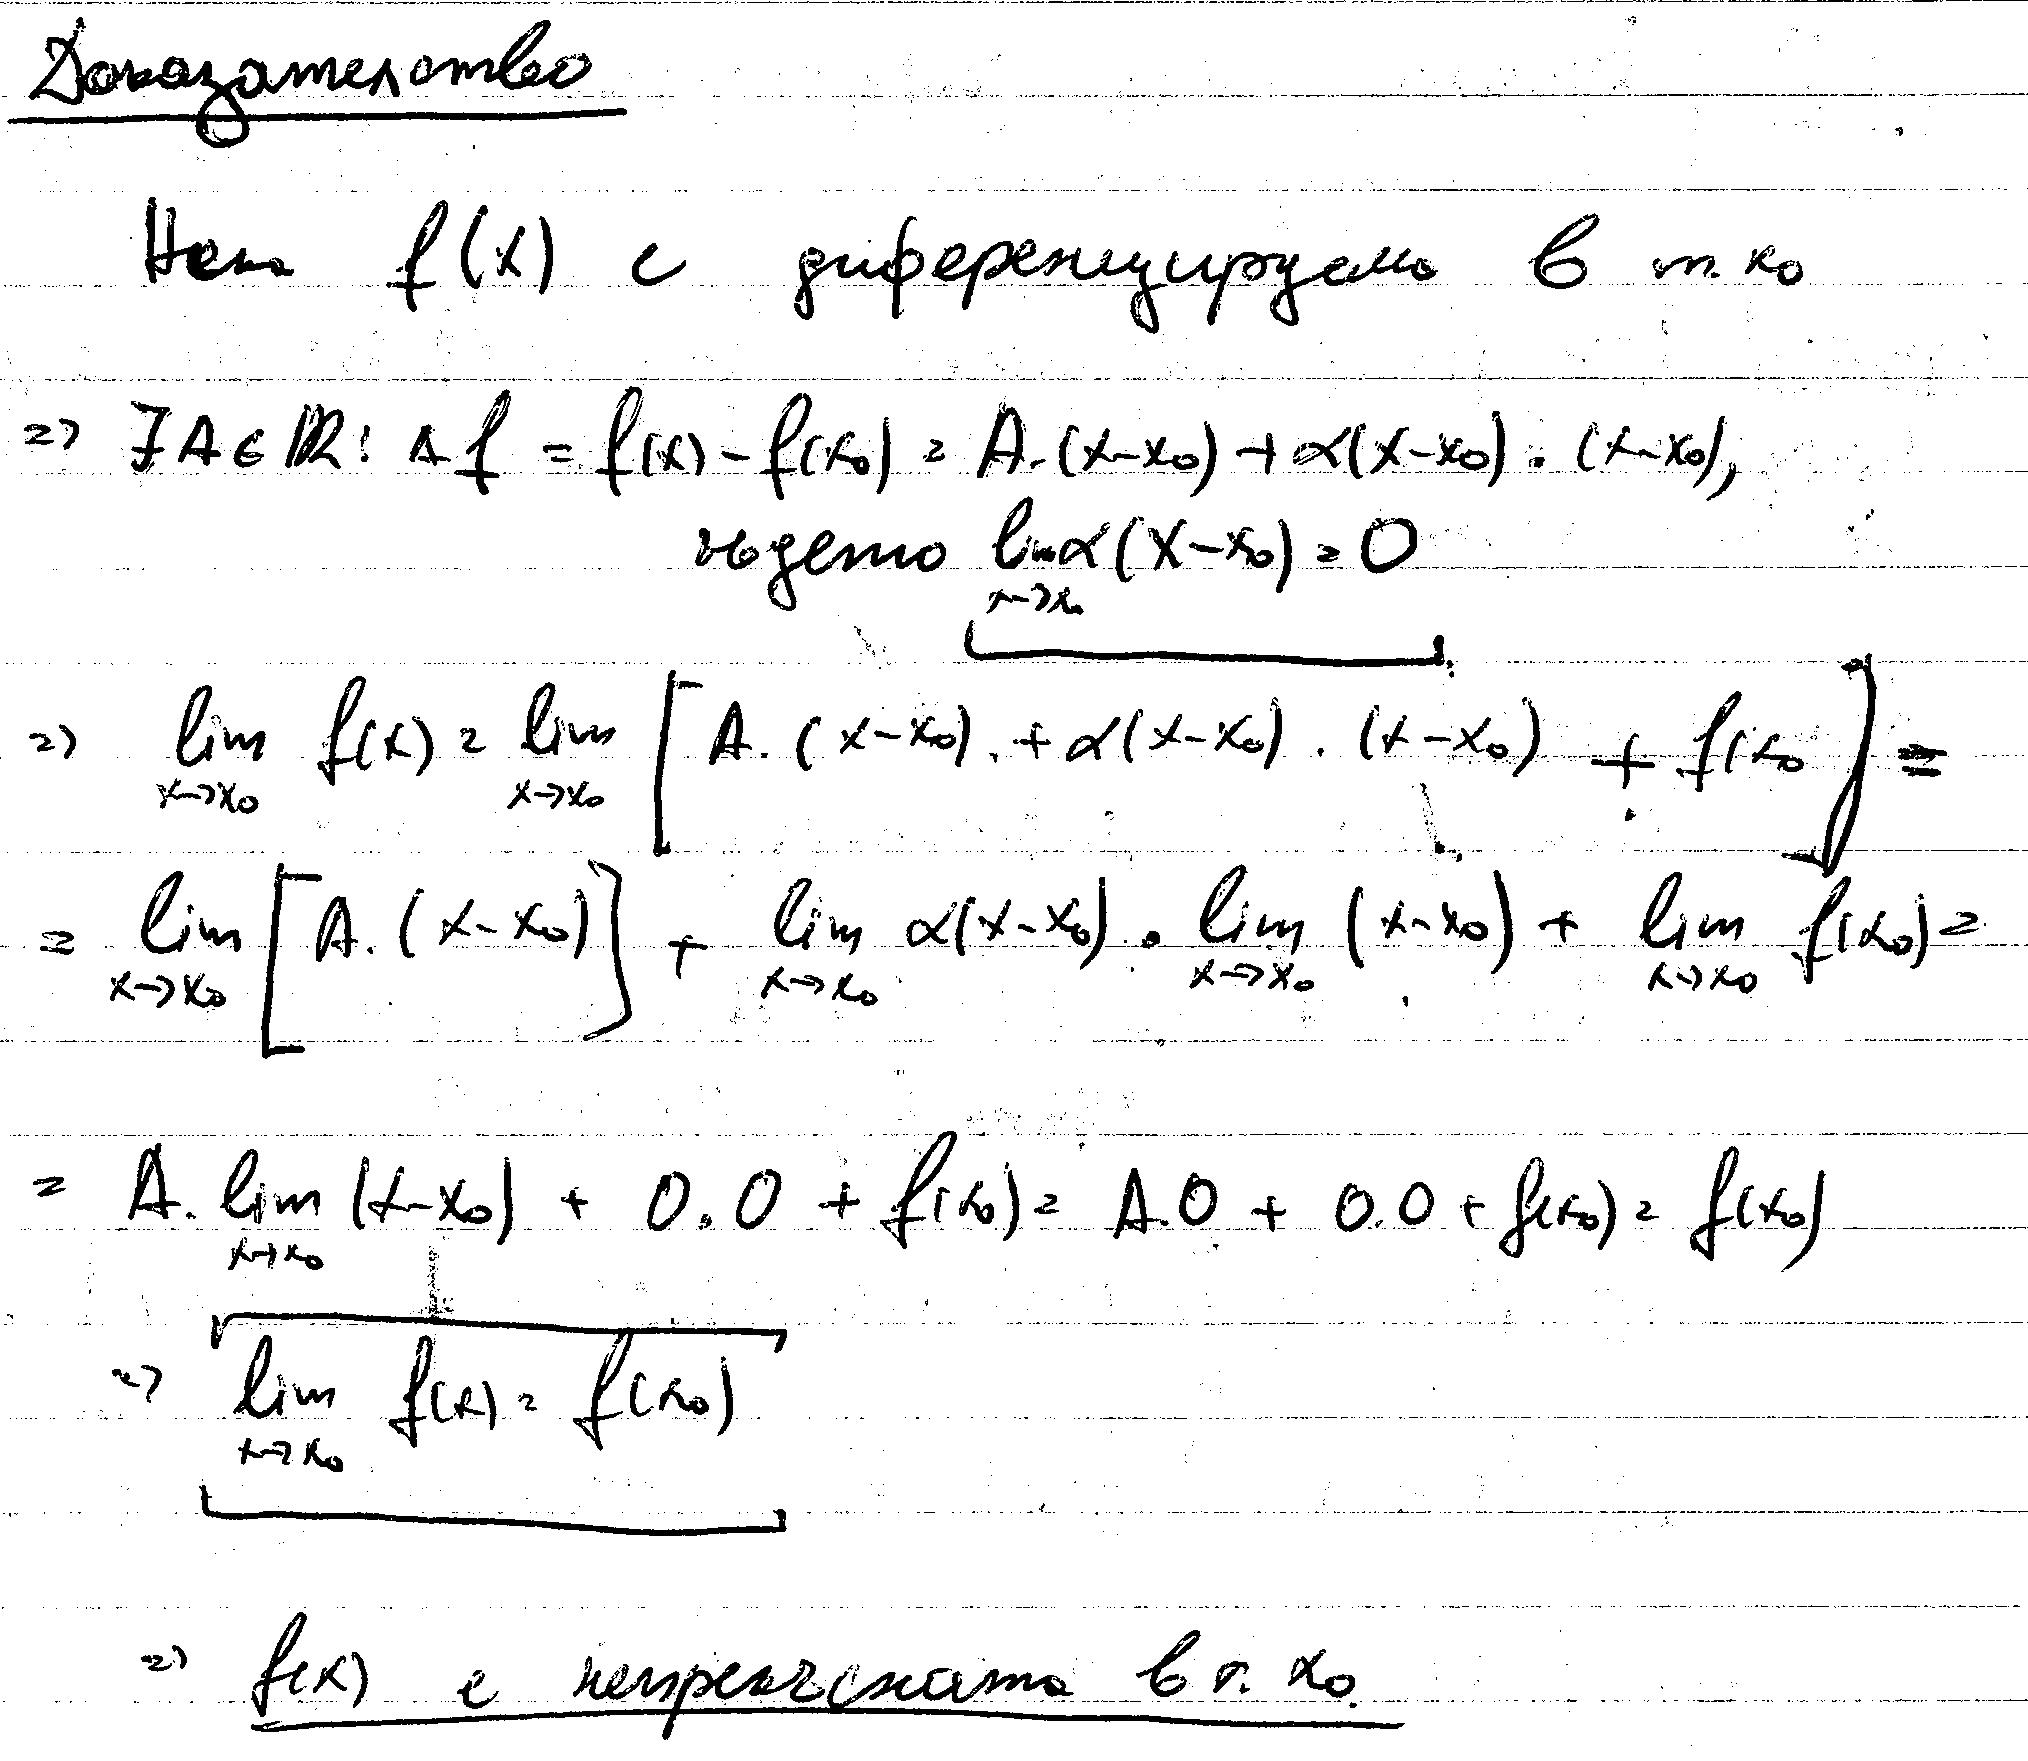 Доказателство
Нека f(x) е диференцируема в т. x₀
=> ∃ A ∈ ℝ: Δf = f(x) - f(x₀) = A.(x-x₀) + α(x-x₀).(x-x₀),
където lim α(x-x₀) = 0
x→x₀
=> lim f(x) = lim [A.(x-x₀) + α(x-x₀).(x-x₀) + f(x₀] =
x→x₀ x→x₀
= lim [A.(x-x₀)] + lim α(x-x₀) . lim (x-x₀) + lim f(x₀) =
x→x₀ x→x₀ x→x₀ x→x₀
= A. lim (x-x₀) + 0.0 + f(x₀) = A.0 + 0.0 + f(x₀) = f(x₀)
x→x₀
=> lim f(x) = f(x₀)
x→x₀
=> f(x) е непрекъсната в т. x₀.